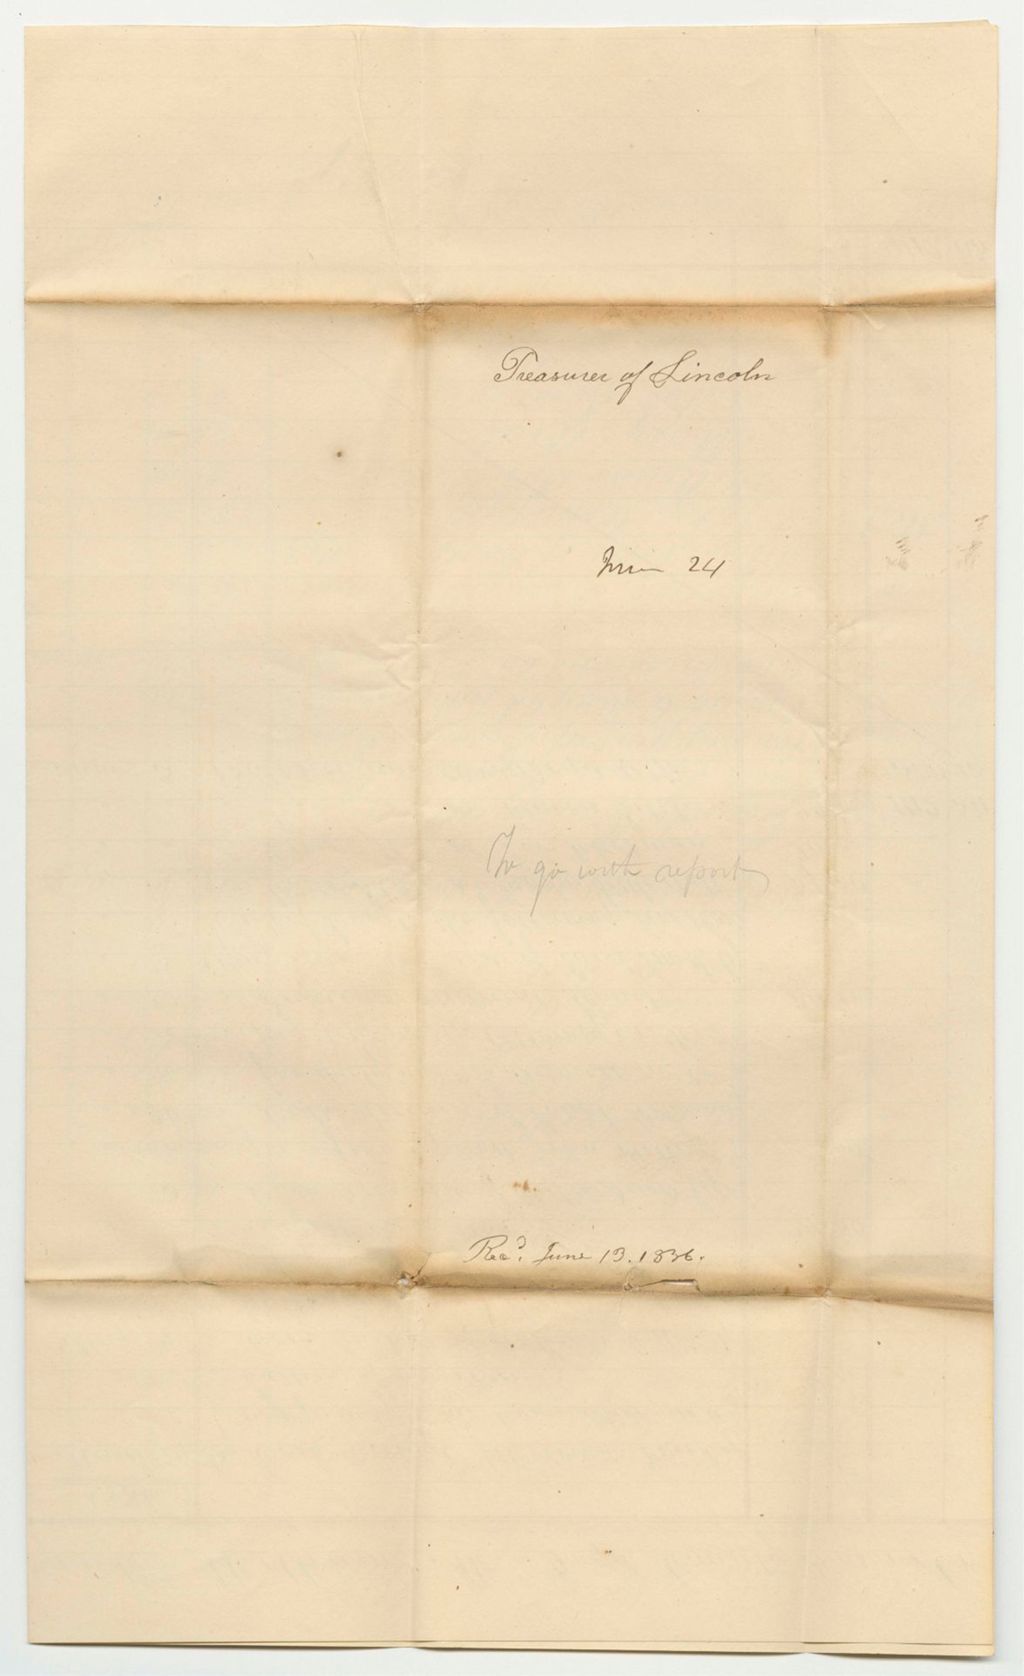 Treasurer of Lincoln
24
To go with report
Recd. June 13. 1836.